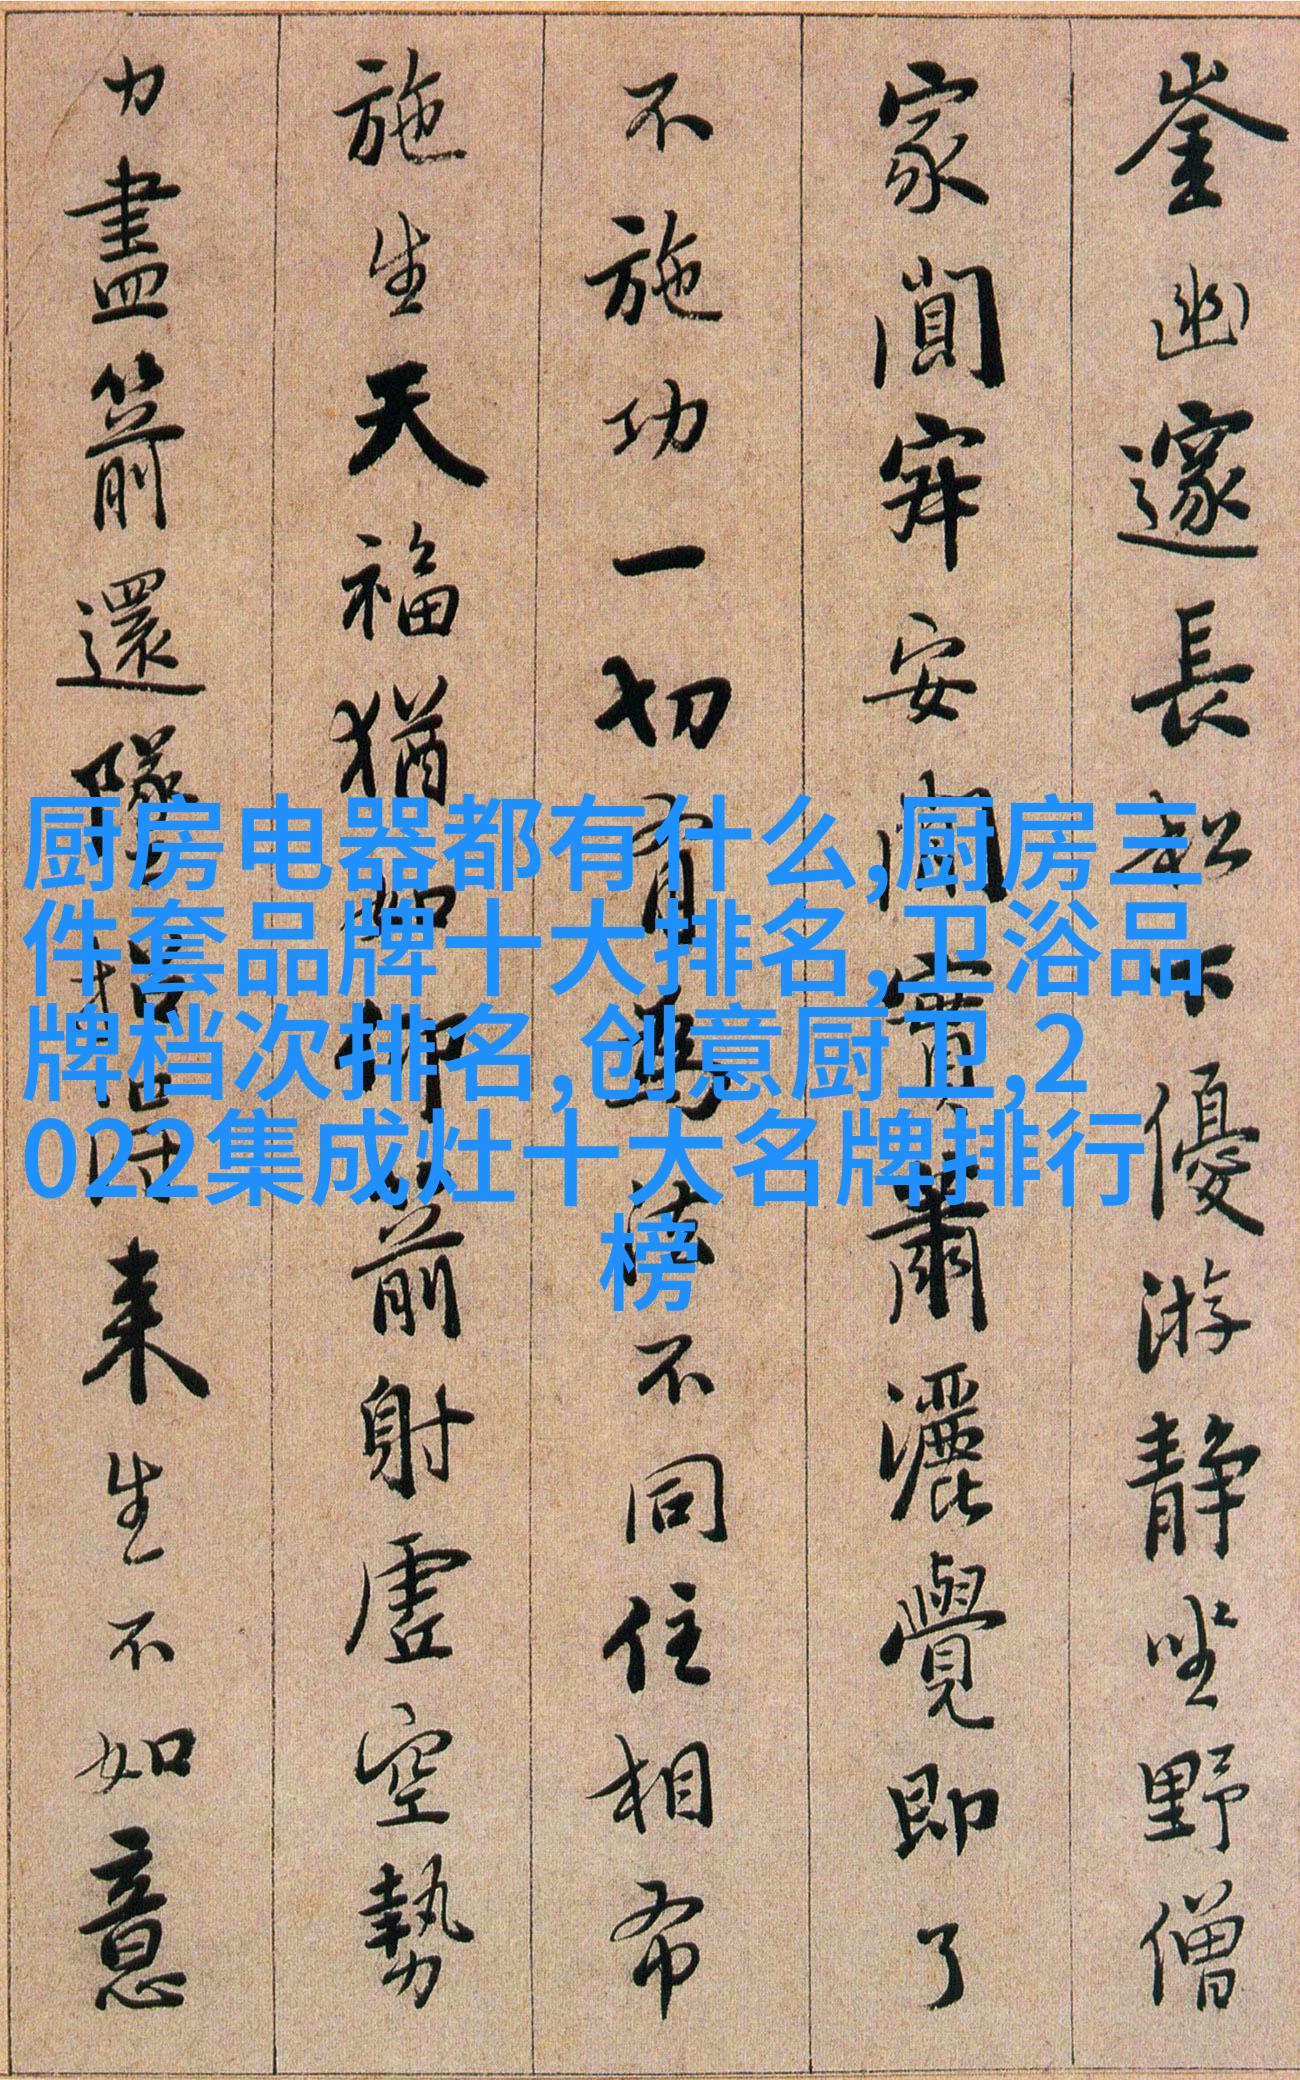 崟幽邃長松下優游靜坐野僧
家闃寂安閑實蕭灑覺即了
不施功一切有為法不同住相布
施生天福猶如仰箭射虛空勢
力盡箭還墜招得來生不如意
厨房电器都有什么,厨房三
件套品牌十大排名,卫浴品
牌档次排名,创意厨卫,2
022集成灶十大名牌排行
榜